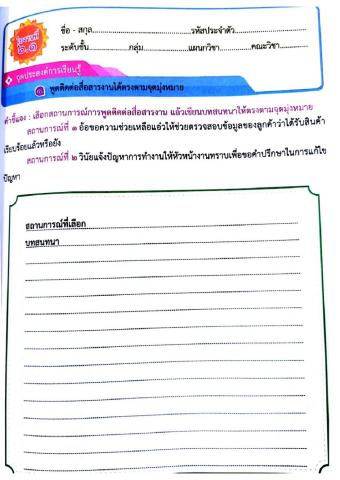 ใบงานที่
๖.๑
ชื่อ - สกุล รหัสประจำตัว
ระดับชั้น กลุ่ม แผนกวิชา คณะวิชา
จุดประสงค์การเรียนรู้
๑ พูดติดต่อสื่อสารงานได้ตรงตามจุดมุ่งหมาย
คำชี้แจง : เลือกสถานการณ์การพูดติดต่อสื่อสารงาน แล้วเขียนบทสนทนาให้ตรงตามจุดมุ่งหมาย
สถานการณ์ที่ ๑ อ้อขอความช่วยเหลือแอ๋วให้ช่วยตรวจสอบข้อมูลของลูกค้าว่าได้รับสินค้า
เรียบร้อยแล้วหรือยัง
สถานการณ์ที่ ๒ วินัยแจ้งปัญหาการทำงานให้หัวหน้างานทราบเพื่อขอคำปรึกษาในการแก้ไข
ปัญหา
สถานการณ์ที่เลือก
บทสนทนา